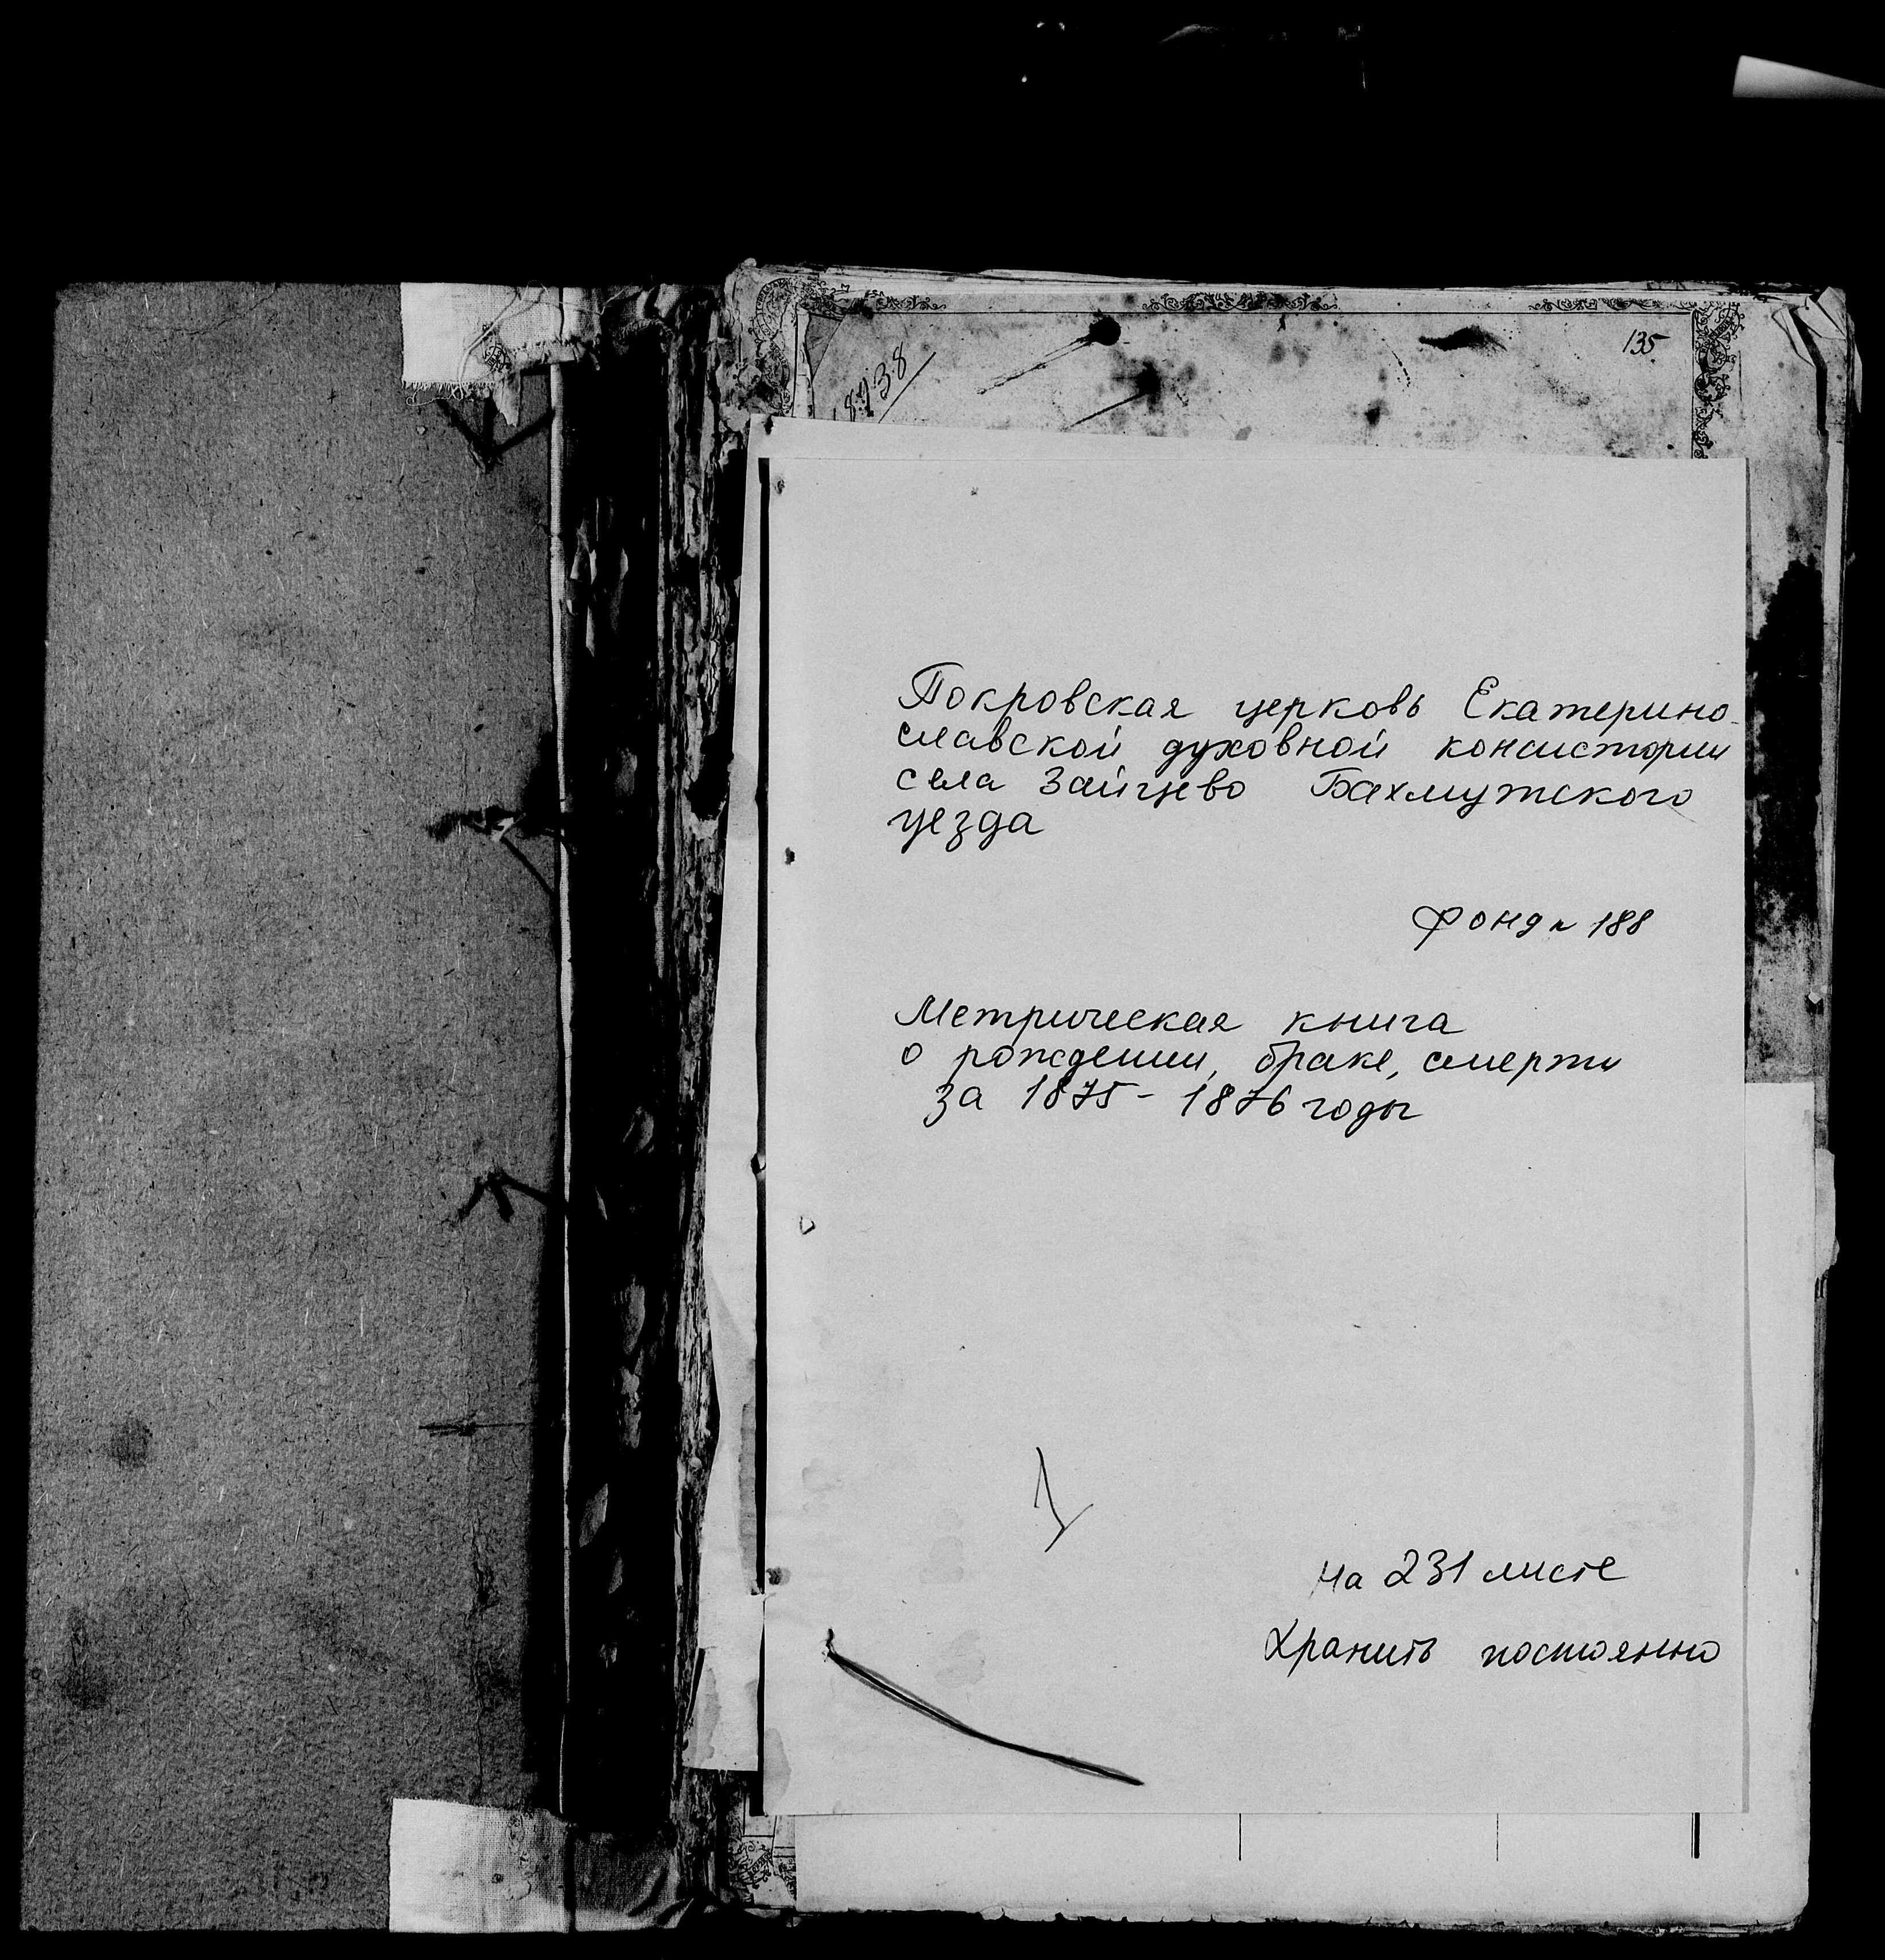 135
Покровская церковь Екатерино-
славской духовной консистории
села Зайцево Бахмутского
уезда
фонд № 188
Метрическая книга
о рождении, браке, смерти
за 1875 - 1876 годы
на 231 листе
Хранить постоянно